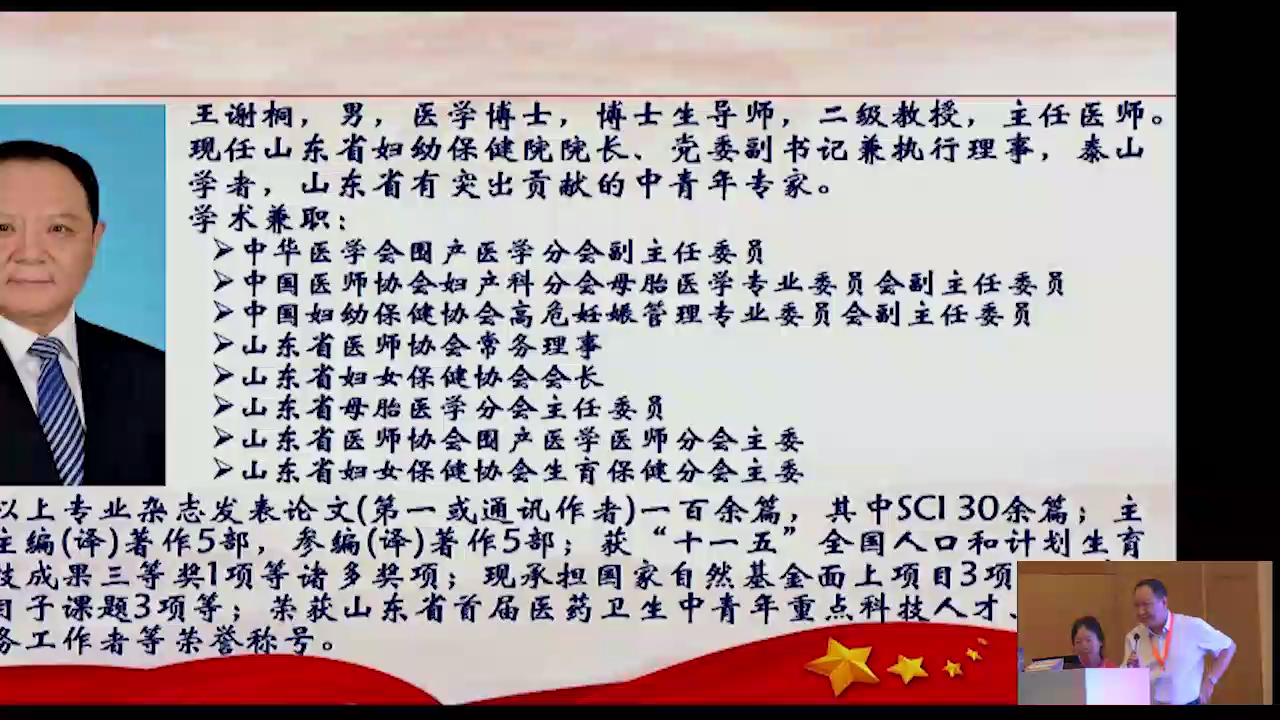 王谢桐，男，医学博士，博士生导师，二级教授，主任医师。
现任山东省妇幼保健院院长、党委副书记兼执行理事，泰山
学者，山东省有突出贡献的中青年专家。
学术兼职：
➢中华医学会围产医学分会副主任委员
➢中国医师协会妇产科分会母胎医学专业委员会副主任委员
➢中国妇幼保健协会高危妊娠管理专业委员会副主任委员
➢山东省医师协会常务理事
➢山东省妇女保健协会会长
➢山东省母胎医学分会主任委员
➢山东省医师协会围产医学医师分会主委
➢山东省妇女保健协会生育保健分会主委
以上专业杂志发表论文(第一或通讯作者)一百余篇，其中SCI 30余篇；主
主编(译)著作5部，参编(译)著作5部；获“十一五”全国人口和计划生育
技成果三等奖1项等诸多奖项；现承担国家自然基金面上项目3项
目子课题3项等；荣获山东省首届医药卫生中青年重点科技人才、
务工作者等荣誉称号。